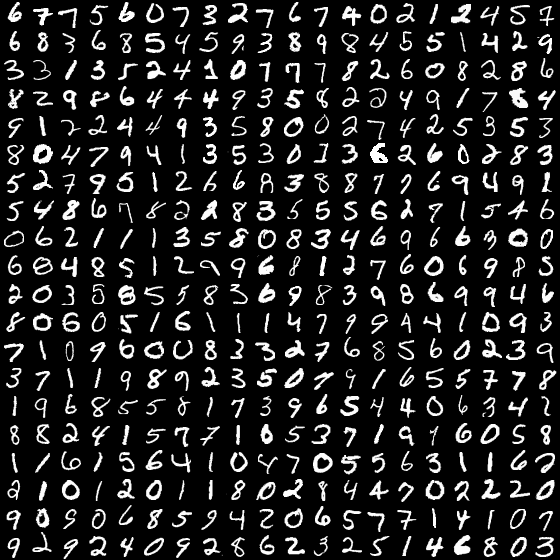 6 7 7 5 6 0 7 3 2 7 6 7 4 0 2 1 2 4 5 7
6 8 3 6 8 5 4 5 9 3 8 9 8 4 5 5 1 4 2 9
3 3 1 3 5 2 4 1 0 7 7 7 8 2 6 0 8 2 8 6
8 2 9 8 6 4 4 4 9 3 5 8 2 2 4 9 1 7 8 4
9 1 2 2 4 4 9 3 5 8 0 0 2 7 4 2 5 3 5 3
8 0 4 7 9 4 1 3 5 3 0 1 3 6 2 6 0 2 8 3
5 2 7 9 0 1 2 6 6 8 3 8 8 7 7 6 9 4 9 1
5 4 8 6 7 8 2 2 8 3 5 5 5 6 2 7 1 5 4 6
0 6 2 1 1 1 3 5 8 0 8 3 4 6 9 6 6 3 0 0
6 8 4 8 5 1 2 9 9 6 8 1 2 7 6 0 6 9 8 5
2 0 3 5 8 5 5 8 3 6 9 8 3 9 8 6 9 9 4 6
8 0 6 0 5 1 6 1 1 1 4 7 9 9 4 4 1 0 9 3
7 1 0 9 6 0 0 8 3 3 2 7 6 8 5 6 0 2 3 9
3 7 1 1 9 8 9 2 3 5 0 7 9 1 6 5 5 7 7 8
1 9 6 8 5 5 8 1 7 3 9 6 5 4 4 0 6 3 4 2
8 8 2 4 1 5 7 7 1 6 5 3 7 1 9 9 6 0 5 8
1 1 6 1 5 6 4 1 0 4 7 0 5 5 6 3 1 1 6 2
2 1 0 1 2 0 1 1 8 0 2 8 4 4 7 0 2 2 2 0
9 0 9 0 6 8 5 9 4 2 0 6 5 7 7 1 4 1 0 7
9 2 9 2 4 0 9 2 8 6 2 3 2 5 1 4 6 8 0 2